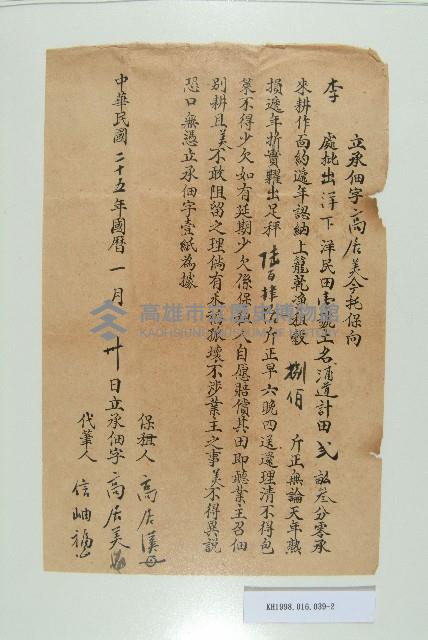 立承佃字高居美今托保向
李 處批出洋下洋民田壹號土名涌道計田弍畝叁分零承
來耕作面約遞年認納上龍乾漁租穀捌佰 斤正無論天年熟
損遞年折實糶出足秤陸百肆 斤正早六晚四送還理清不得包
葉不得少欠如有延期少欠係保 人自愿賠償其田即聽業主召佃
別耕且美不敢阻留之理倘有 水 振壞不涉業主之事美不得異說
恐口無憑立承佃字壹紙為據
中華民國二十五年國曆一月 卅 日立承佃字高居美
保租人 高居漢
代筆人 信岫
高雄市立歷史博物館
KAOHSIUNG MUSEUM OF HISTORY
KH1998.016.039-2